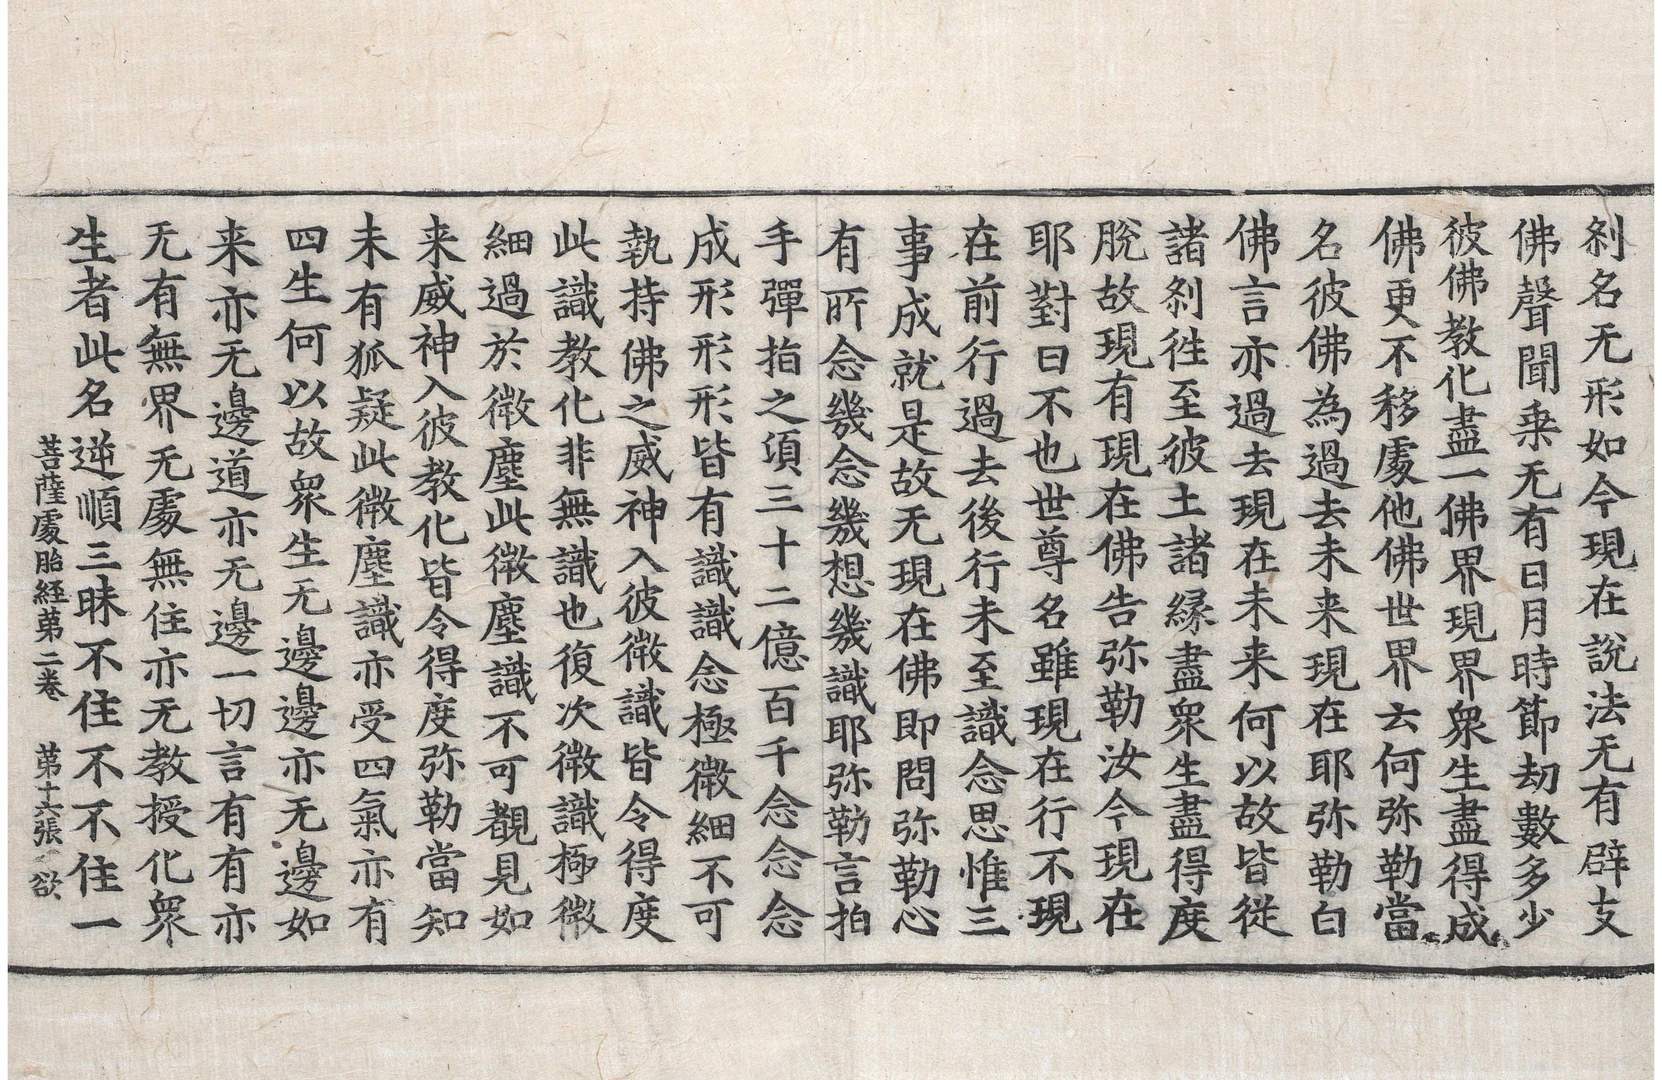 刹名无形如今現在說法无有辟支
佛聲聞乘无有日月時節劫數多少
彼佛教化盡一佛界現界衆生盡得成
佛更不移處他佛世界云何弥勒當
名彼佛為過去未来現在耶弥勒白
佛言亦過去現在未来何以故皆從
諸刹徃至彼土諸緣盡衆生盡得度
脫故現有現在佛告弥勒汝今現在
耶對曰不也世尊名雖現在行不現
在前行過去後行未至識念思惟三
事成就是故无現在佛即問弥勒心
有所念幾念幾想幾識耶弥勒言拍
手彈指之湏三十二億百千念念念
成形形形皆有識識念極微細不可
執持佛之威神入彼微識皆令得度
此識教化非無識也復次微識極微
細過於微塵此微塵識不可覩見如
来威神入彼教化皆令得度弥勒當知
未有狐疑此微塵識亦受四氣亦有
四生何以故衆生无邊邊亦无邊如
来亦无邊道亦无邊一切言有有亦
无有無界无處無住亦无教授化衆
生者此名逆順三昧不住不不住一
菩薩處胎經第二卷 第十六張 欲